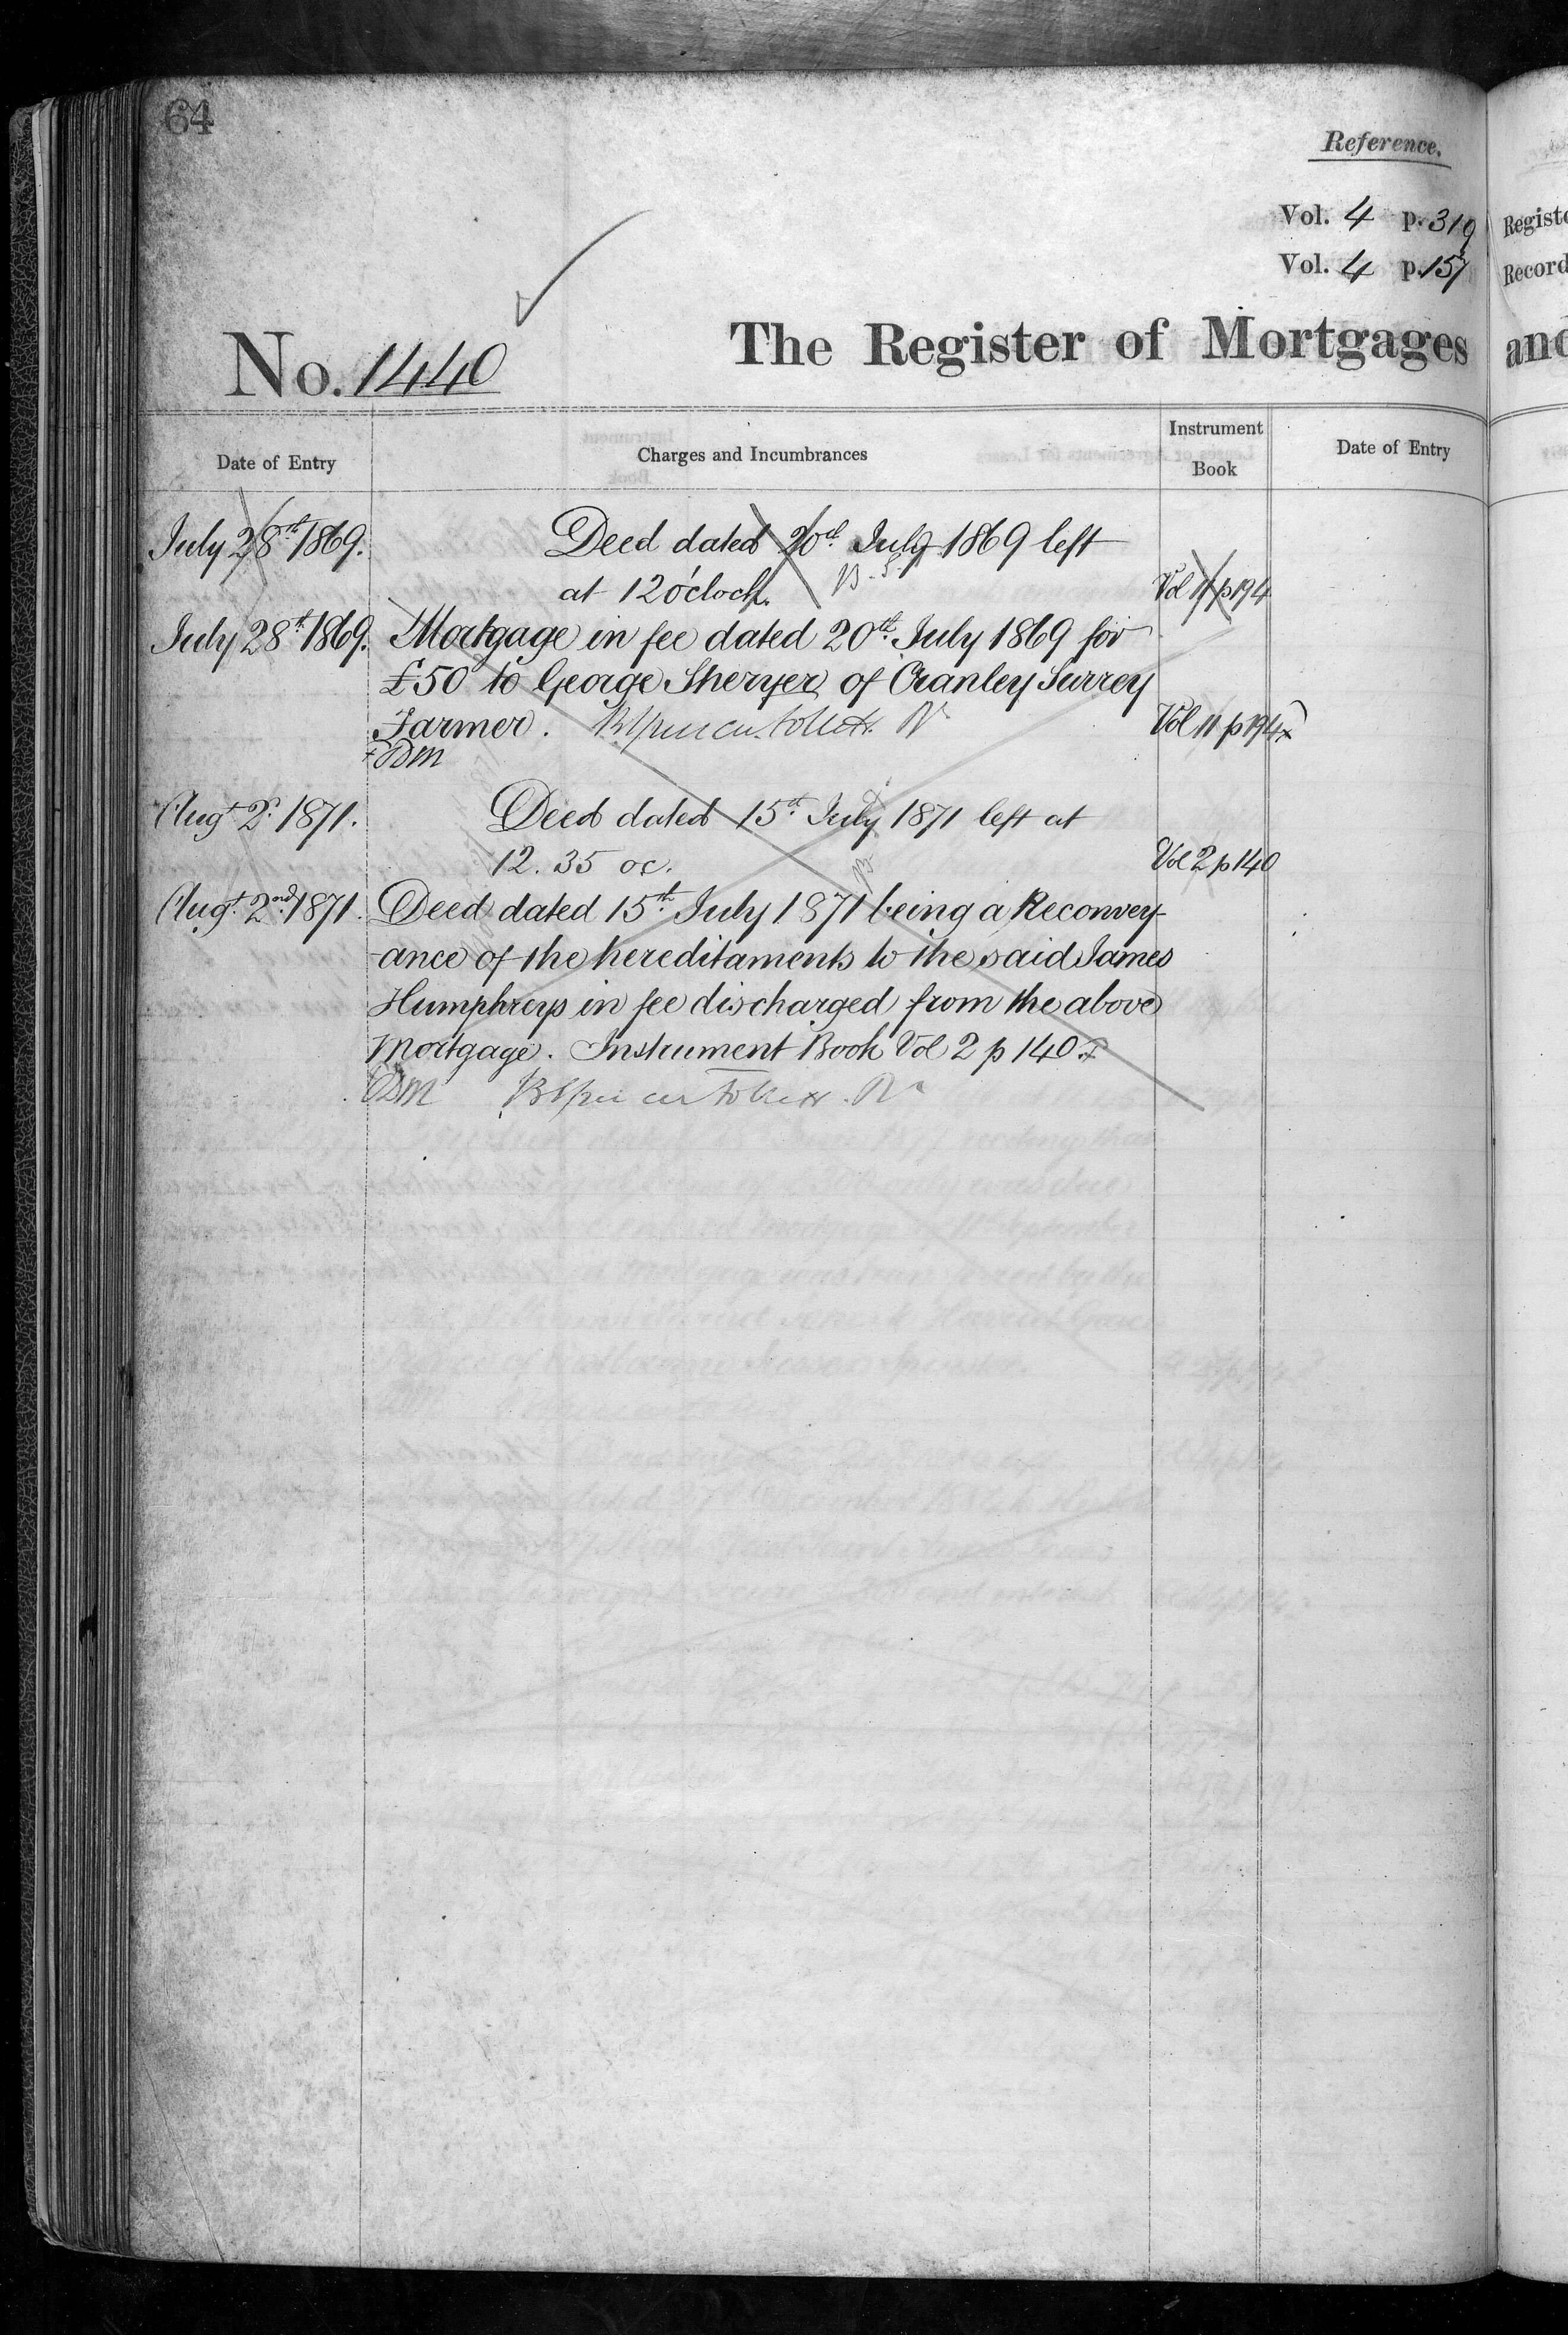 64
Reference.
Vol. 4 p. 319
Vol. 4 p. 157
No. 1440
The Register of Mortgages and
Date of Entry
Charges and Incumbrances
Instrument Book
Date of Entry
July 28th 1869.
Deed dated 20th July 1869 left
at 12 o'clock.
Vol 11 p 194
July 28th 1869.
Mortgage in fee dated 20th July 1869 for
£50 to George Sheryer of Cranley Surrey
Farmer.
Vol 11 p 194
DM
Augt 2d 1871.
Deed dated 15th July 1871 left at
12.35 oc.
Vol 2 p 140
Augt 2nd 1871.
Deed dated 15th July 1871 being a Reconvey-
ance of the hereditaments to the said James
Humphreys in fee discharged from the above
Mortgage. Instrument Book Vol 2 p 140
DM